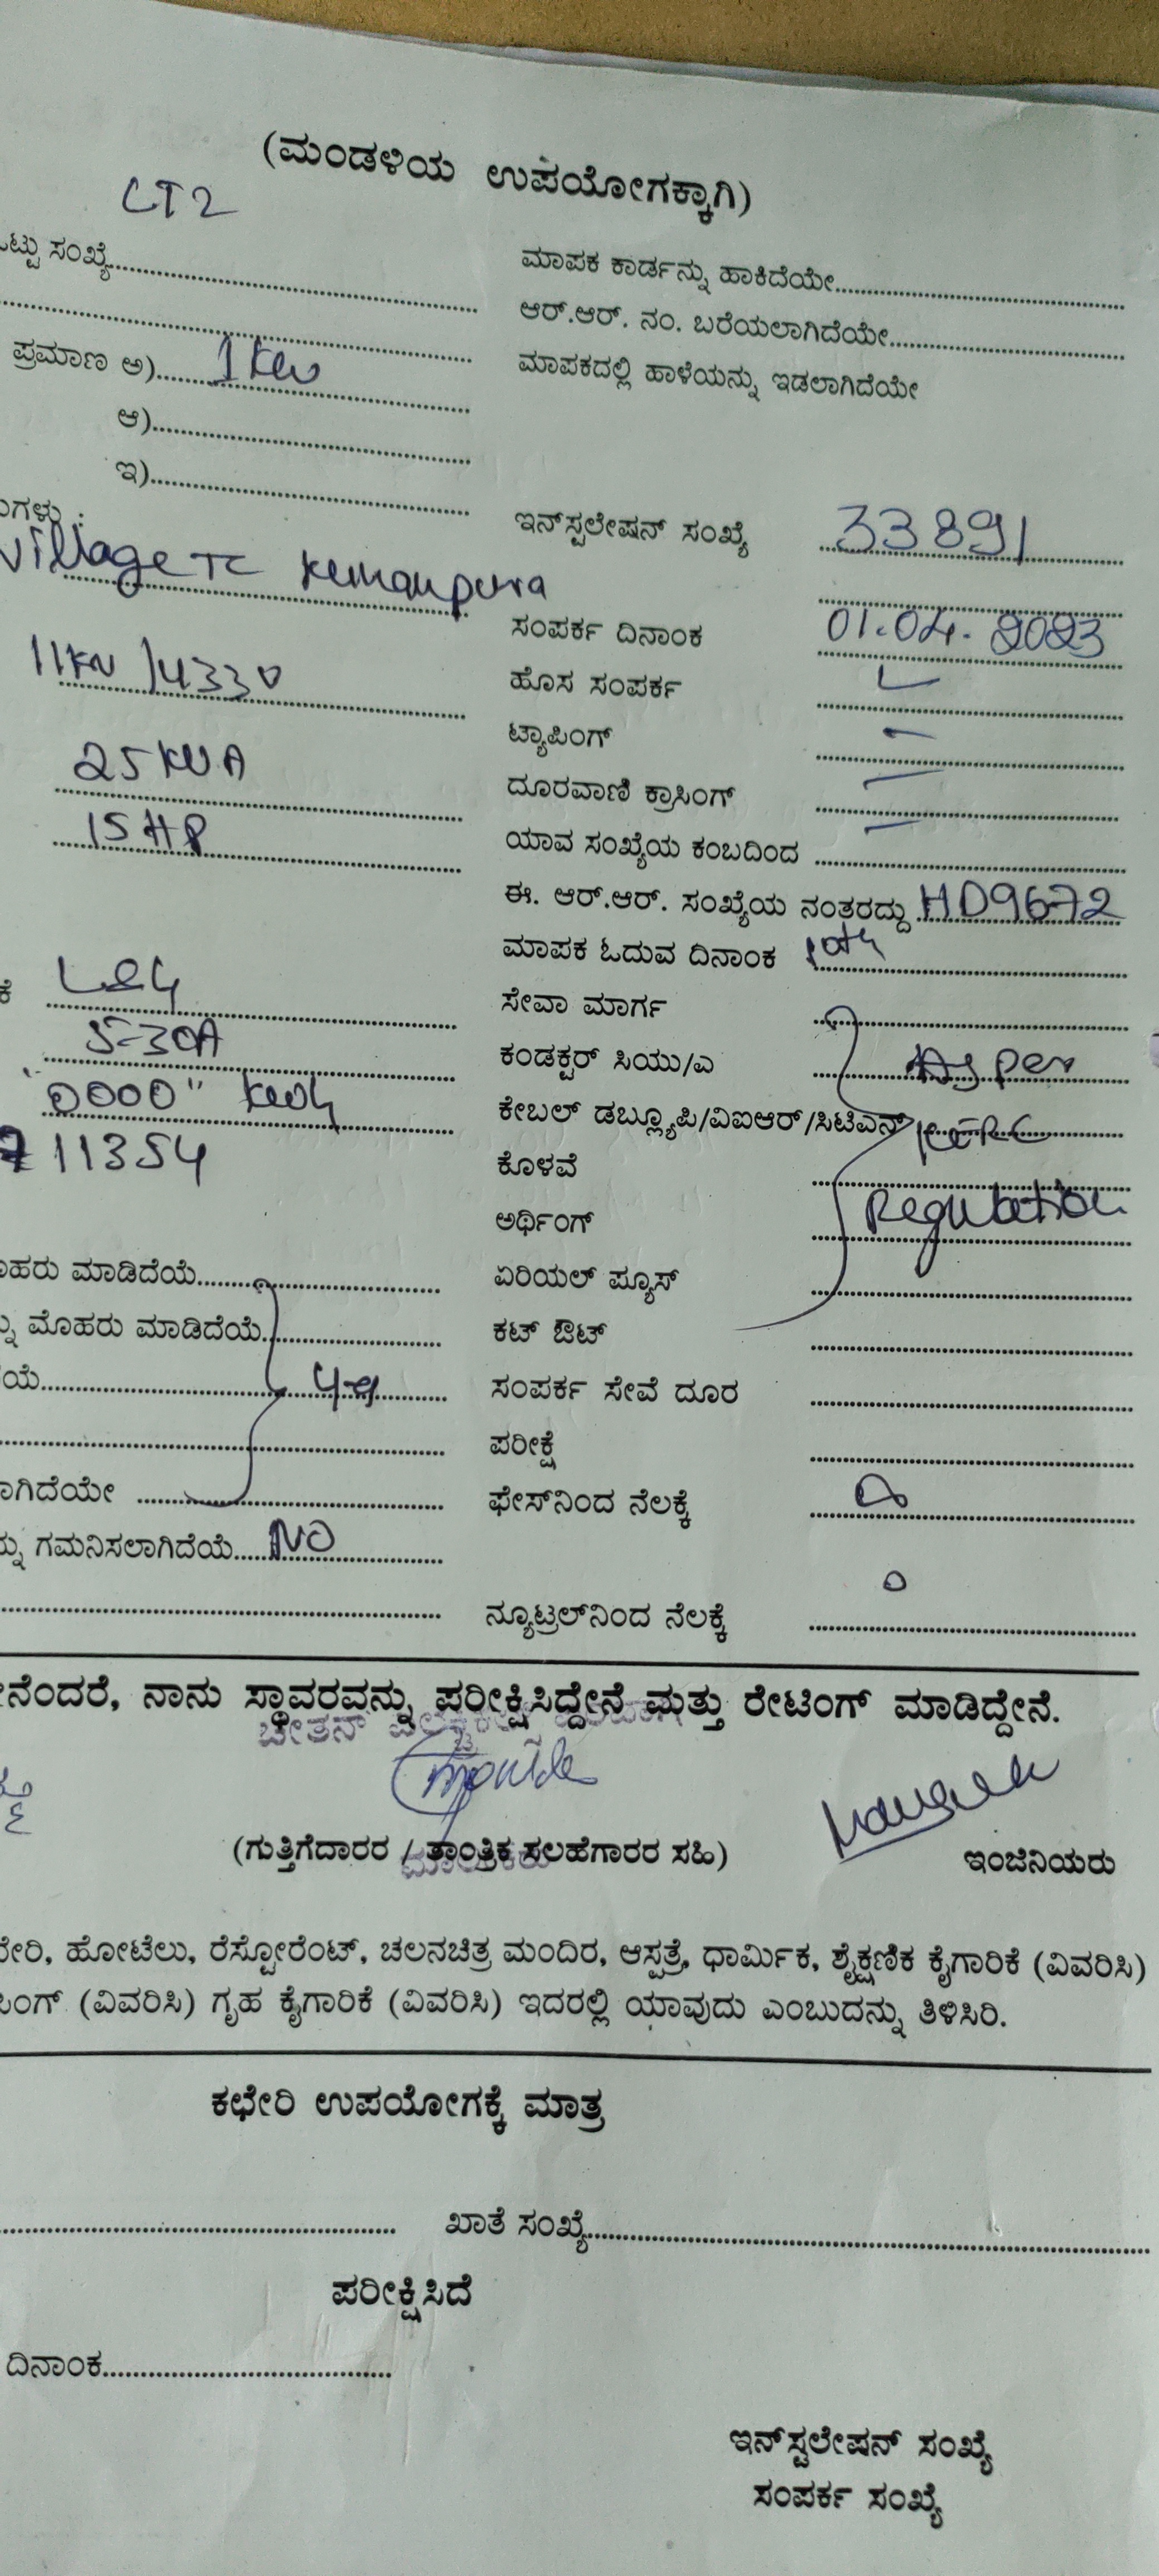 (ಮಂಡಳಿಯ ಉಪಯೋಗಕ್ಕಾಗಿ)
LT2
ಸಂಖ್ಯೆ
ಮಾಪಕ ಕಾರ್ಡನ್ನು ಹಾಕಿದೆಯೇ
ಆರ್.ಆರ್. ನಂ. ಬರೆಯಲಾಗಿದೆಯೇ
ಪ್ರಮಾಣ ಅ) 1 KW
ಮಾಪಕದಲ್ಲಿ ಹಾಳೆಯನ್ನು ಇಡಲಾಗಿದೆಯೇ
ಆ)
ಇ)
ಇನ್‌ಸ್ಟಲೇಷನ್ ಸಂಖ್ಯೆ 33891
Village TC Kemanpura
ಸಂಪರ್ಕ ದಿನಾಂಕ 01.04.2023
11KV/433V
ಹೊಸ ಸಂಪರ್ಕ
ಟ್ಯಾಪಿಂಗ್ –
25 KVA
ದೂರವಾಣಿ ಕ್ರಾಸಿಂಗ್ –
15 HP
ಯಾವ ಸಂಖ್ಯೆಯ ಕಂಬದಿಂದ –
ಈ. ಆರ್.ಆರ್. ಸಂಖ್ಯೆಯ ನಂತರದ್ದು HD9672
ಮಾಪಕ ಓದುವ ದಿನಾಂಕ 10th
L&G
ಸೇವಾ ಮಾರ್ಗ
5-30A
ಕಂಡಕ್ಟರ್ ಸಿಯು/ಎ As per
"0000" kwh
ಕೇಬಲ್ ಡಬ್ಲ್ಯೂಪಿ/ವಿಐಆರ್/ಸಿಟಿಎಸ್ KERC
11354
ಕೊಳವೆ
ಅರ್ಥಿಂಗ್ Regulation
ಮಾಡಿದೆಯೆ
ಏರಿಯಲ್ ಫ್ಯೂಸ್
ಮೊಹರು ಮಾಡಿದೆಯೆ
ಕಟ್ ಔಟ್
ಸಂಪರ್ಕ ಸೇವೆ ದೂರ
ಪರೀಕ್ಷೆ
ಫೇಸ್‌ನಿಂದ ನೆಲಕ್ಕೆ
ಗಮನಿಸಲಾಗಿದೆಯೆ NO
ನ್ಯೂಟ್ರಲ್‌ನಿಂದ ನೆಲಕ್ಕೆ
ನಾನು ಸ್ಥಾವರವನ್ನು ಪರೀಕ್ಷಿಸಿದ್ದೇನೆ ಮತ್ತು ರೇಟಿಂಗ್ ಮಾಡಿದ್ದೇನೆ.
ಚೇತನ್
(ಗುತ್ತಿಗೆದಾರರ / ತಾಂತ್ರಿಕ ಸಲಹೆಗಾರರ ಸಹಿ)
ಇಂಜಿನಿಯರು
ಹೋಟೆಲು, ರೆಸ್ಟೋರೆಂಟ್, ಚಲನಚಿತ್ರ ಮಂದಿರ, ಆಸ್ಪತ್ರೆ, ಧಾರ್ಮಿಕ, ಶೈಕ್ಷಣಿಕ ಕೈಗಾರಿಕೆ (ವಿವರಿಸಿ)
(ವಿವರಿಸಿ) ಗೃಹ ಕೈಗಾರಿಕೆ (ವಿವರಿಸಿ) ಇದರಲ್ಲಿ ಯಾವುದು ಎಂಬುದನ್ನು ತಿಳಿಸಿರಿ.
ಕಛೇರಿ ಉಪಯೋಗಕ್ಕೆ ಮಾತ್ರ
ಖಾತೆ ಸಂಖ್ಯೆ
ಪರೀಕ್ಷಿಸಿದೆ
ದಿನಾಂಕ
ಇನ್‌ಸ್ಟಲೇಷನ್ ಸಂಖ್ಯೆ
ಸಂಪರ್ಕ ಸಂಖ್ಯೆ